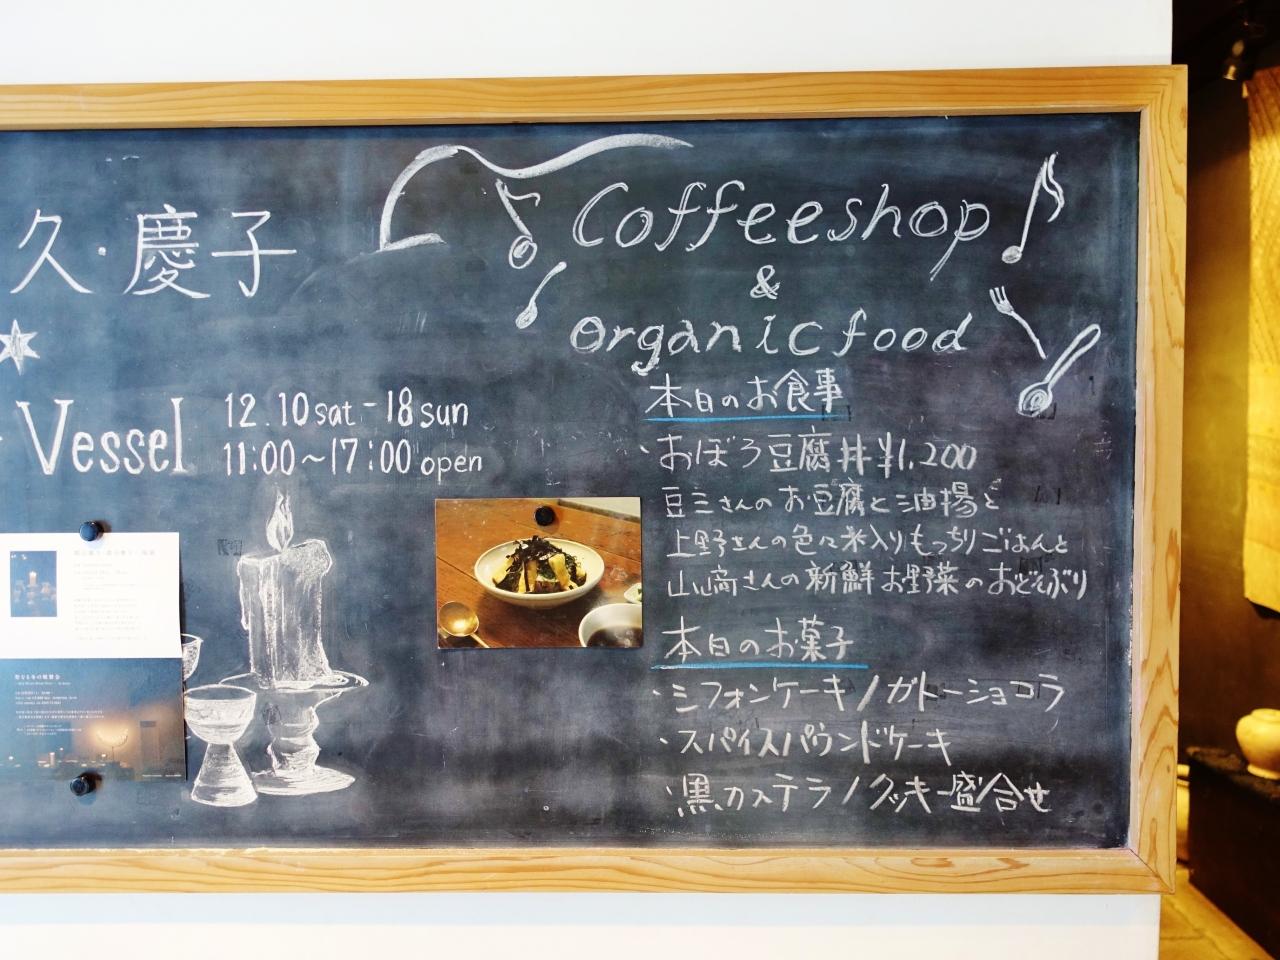 久・慶子
Vessel
12.10 sat - 18 sun
11:00～17:00 open
Coffeeshop
&
Organic food
本日のお食事
・おぼろ豆腐丼 ¥1,200
豆三さんのお豆腐と油揚と
上野さんの色々米入りもっちりごはんと
山﨑さんの新鮮お野菜のおどんぶり
本日のお菓子
・シフォンケーキ/ガトーショコラ
・スパイスパウンドケーキ
・黒カステラ/クッキー盛合せ